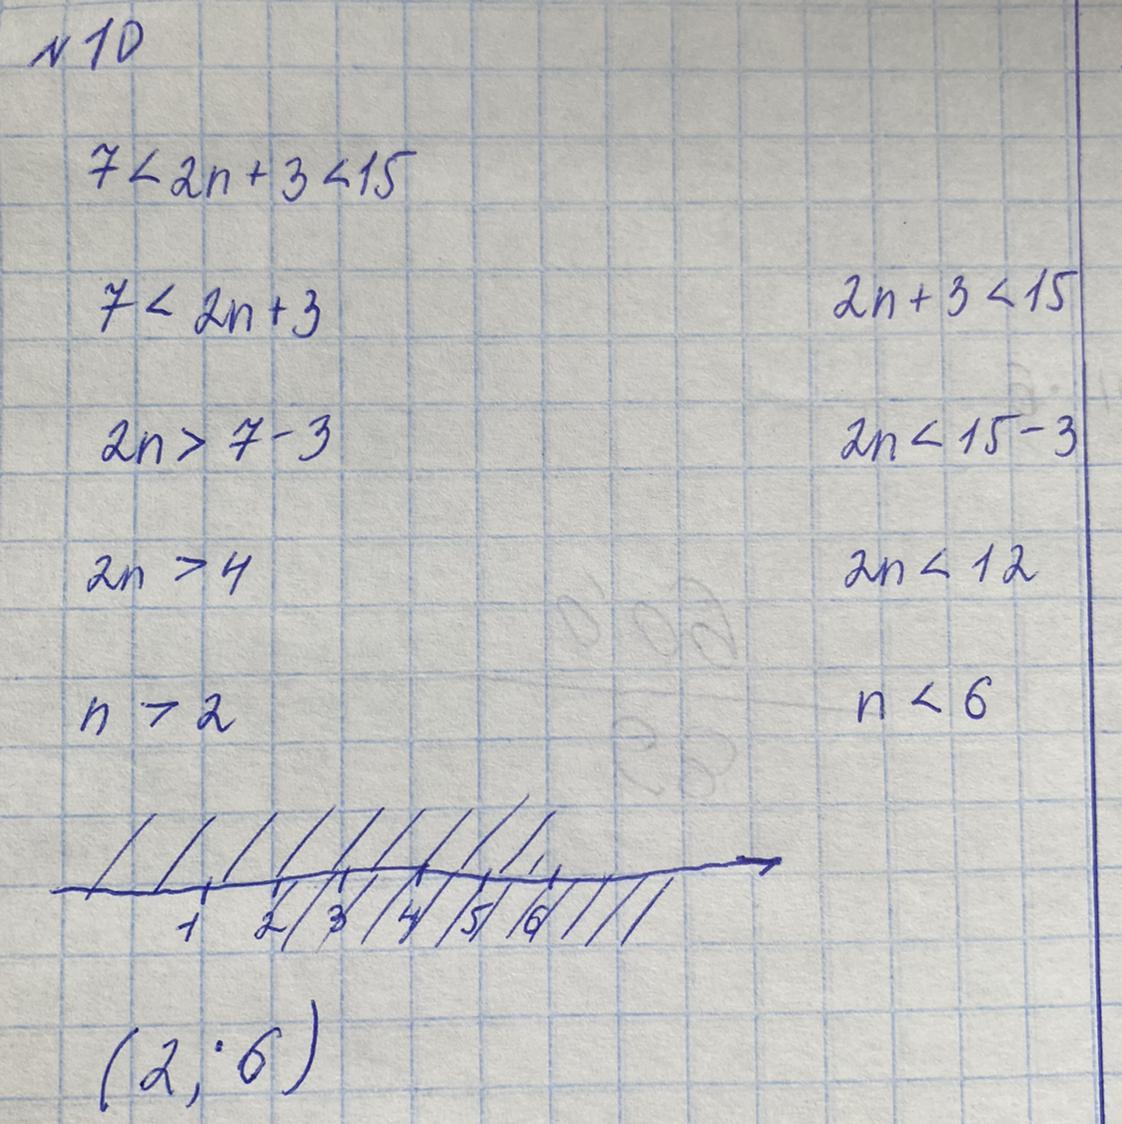 №10
7<2n+3<15
7<2n+3 2n+3<15
2n>7-3 2n<15-3
2n>4 2n<12
n>2 n<6
1 2 3 4 5 6
(2;6)